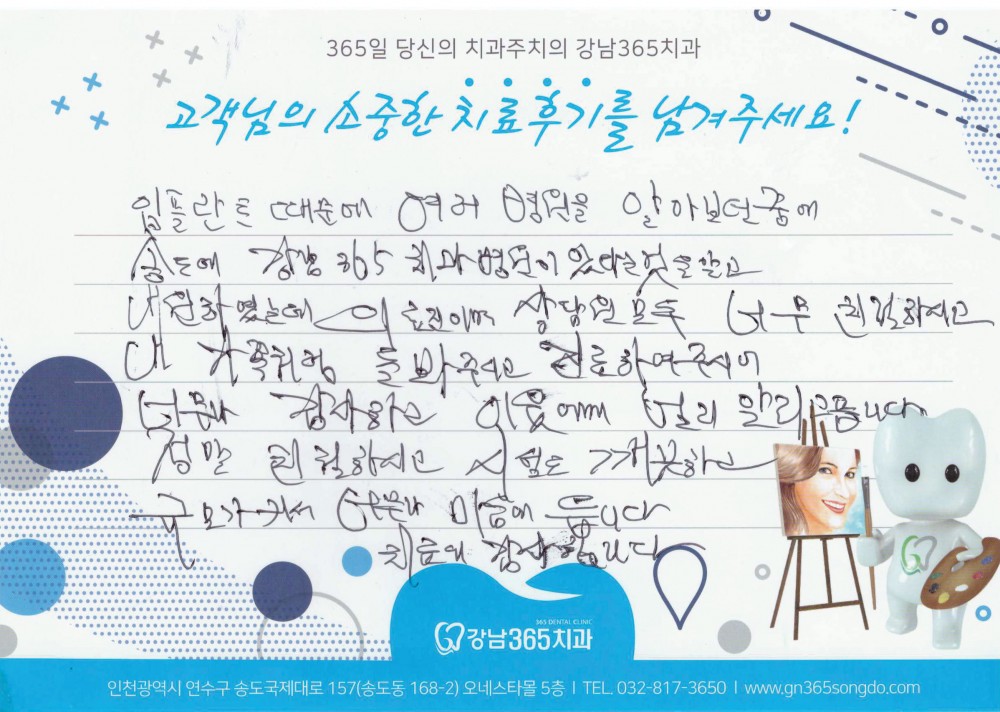 365일 당신의 치과주치의 강남365치과
고객님의 소중한 치료후기를 남겨주세요!
임플란트 때문에 여러 병원을 알아보던중에
송도에 강남 365 치과병원이 있다는것을 알고
내원하였는데 상담원 모두 너무 친절하시고
내 가족처럼 돌봐주시고 진료하여주시어
너무나 감사하고 이웃에께 널리 알리고픕니다
정말 친절하시고 시설도 깨끗하고
규모가커서 너무나 마음에 듭니다
치료에 감사합니다
365 DENTAL CLINIC
강남365치과
인천광역시 연수구 송도국제대로 157(송도동 168-2) 오네스타몰 5층 | TEL. 032-817-3650 | www.gn365songdo.com